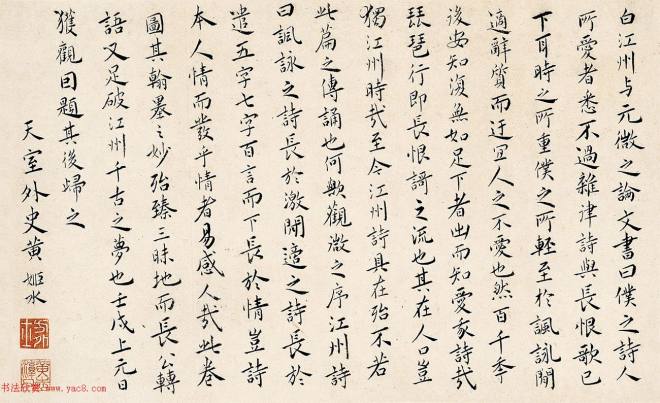 白江州与元微之論文書曰僕之詩人
所愛者悉不過雜律詩與長恨歌已
下耳時之所重僕之所輕至於諷詠閒
適辭質而迂宜人之不愛也然百千年
後安知復無如足下者出而知愛我詩哉
琵琶行即長恨謌之流也其在人口豈
獨江州時哉至今江州詩具在殆不若
此篇之傳誦也何歟觀微之序江州詩
曰諷詠之詩長於激閒適之詩長於
遣五字七字百言而下長於情豈詩
本人情而發乎情者易感人哉此卷
圖其翰墨之妙殆臻三昧地而長公轉
語又足破江州千古之夢也壬戌上元日
獲觀因題其後歸之
天室外史黄姬水
书法欣赏 www.yac8.com